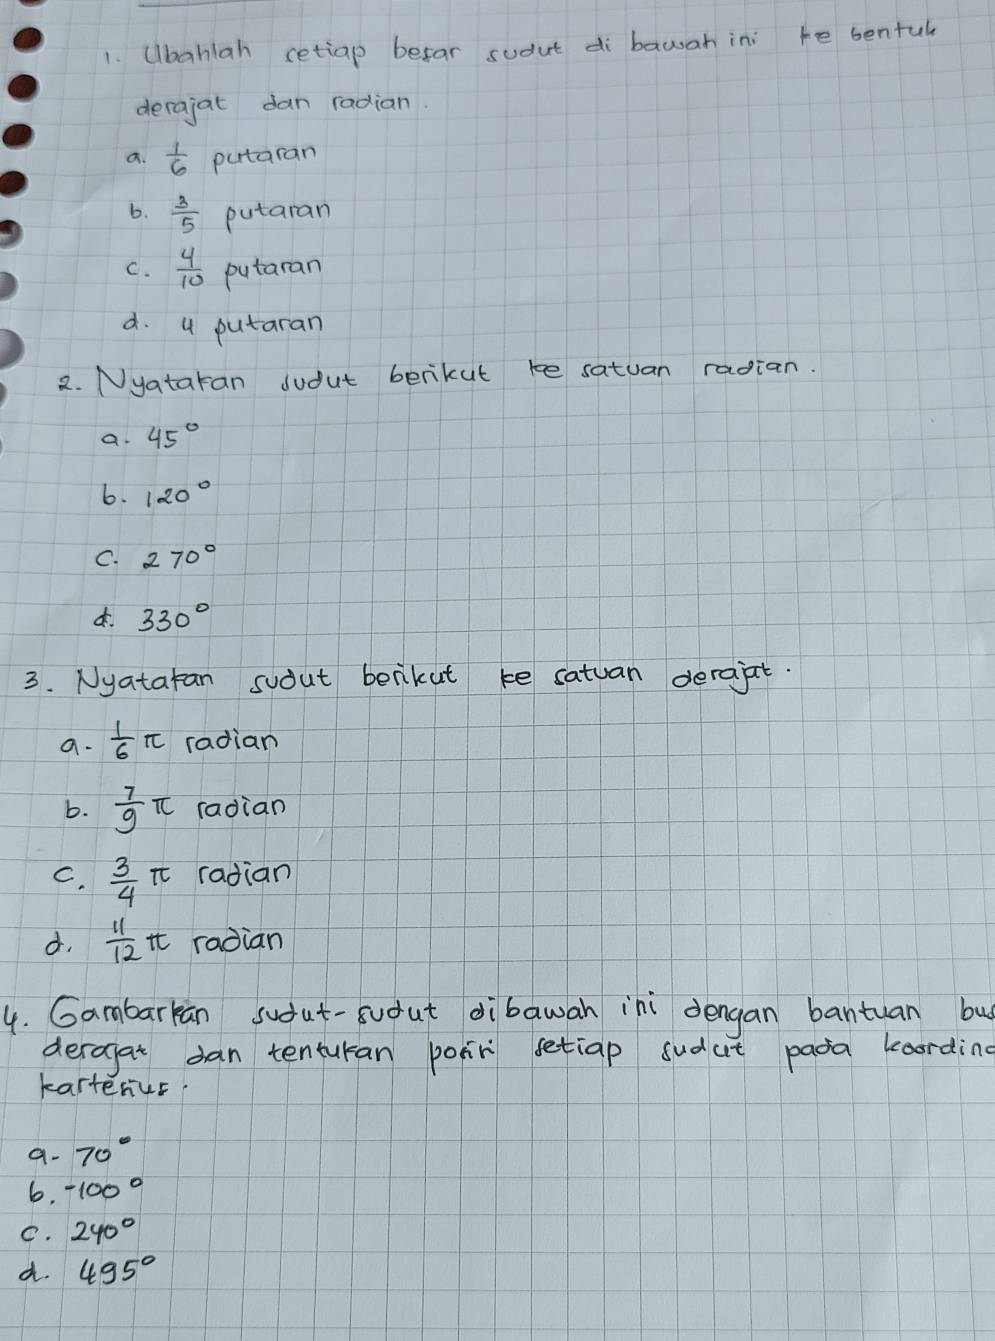 1. Ubahlah setiap besar sudut di bawah ini ke bentuk
derajat dan radian.
a. 1/6 putaran
b. 3/5 putaran
c. 4/10 putaran
d. 4 putaran
2. Nyatakan sudut berikut ke satuan radian.
a. 45°
b. 120°
c. 270°
d. 330°
3. Nyatakan sudut berikut ke satuan derajat.
a. 1/6 π radian
b. 7/9 π radian
c. 3/4 π radian
d. 11/12 π radian
4. Gambarkan sudut-sudut dibawah ini dengan bantuan bus
derajat dan tentukan posisi setiap sudut pada koordina
kartesius.
a. 70°
b. -100°
c. 240°
d. 495°